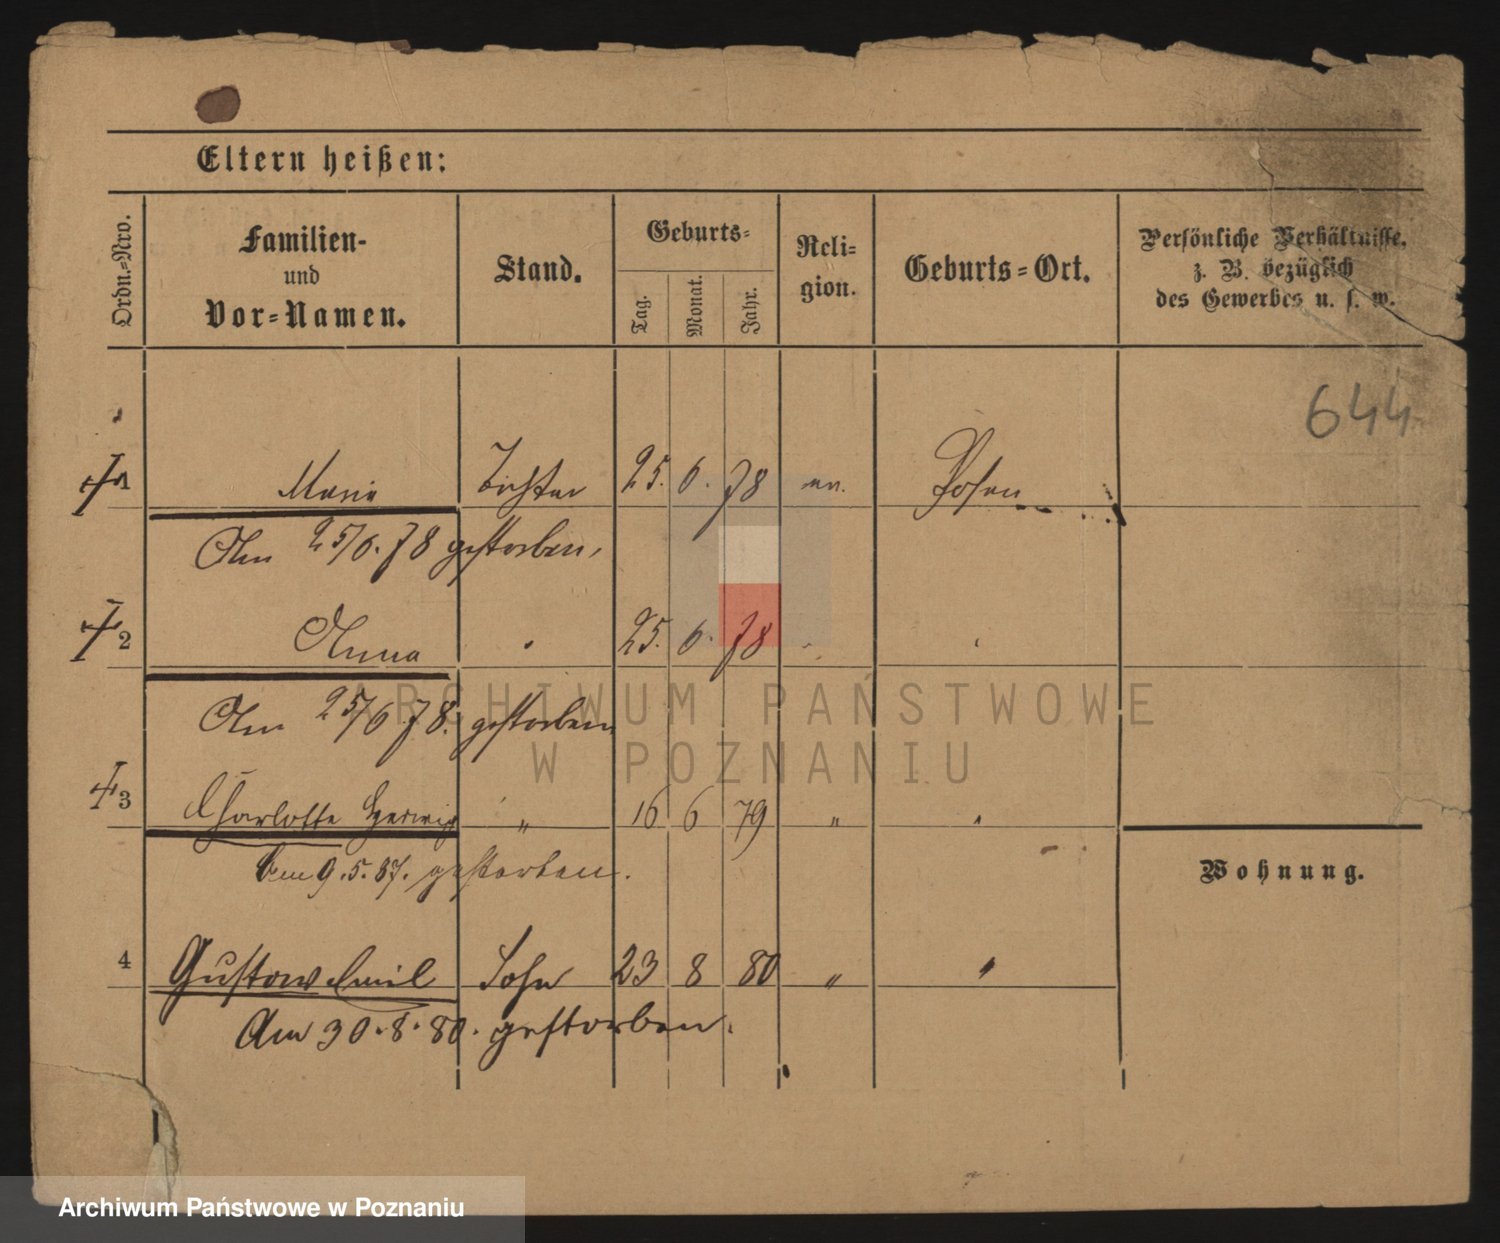 Eltern heißen:
Ordn.-Nro.
Familien- und Vor-Namen.
Stand.
Geburts-
Tag.
Monat.
Jahr.
Religion.
Geburts-Ort.
Persönliche Verhältnisse, z. B. bezüglich des Gewerbes u. s. w.
644
1 Maria Tochter 25. 6. 78 ev. Posen
Am 25/6. 78 gestorben.
2 Anna " 25. 6. 78 " "
Am 25/6 78. gestorben
ARCHIWUM PAŃSTWOWE
W POZNANIU
3 Charlotte Hedwig " 16 6 79 " "
Am 9.5.87. gestorben.
Wohnung.
4 Gustav Emil Sohn 23 8 80 " "
Am 30.8.80. gestorben.
Archiwum Państwowe w Poznaniu